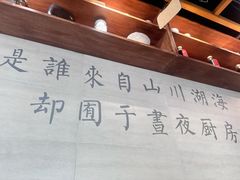 是誰來自山川湖海
却囿于晝夜厨房